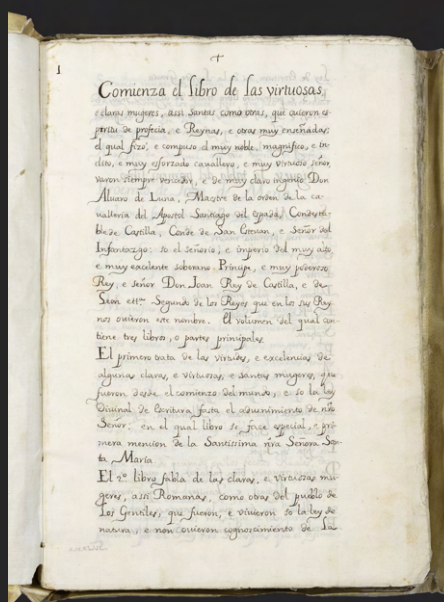 +
1
Comienza el libro de las virtuosas,
e claras mugeres, assi Santas como otras, que ovieron es
piritu de profecia, e Reynas, e otras muy enseñadas;
el qual fizo, e compuso el muy noble, magnifico, e in
clito, e muy esforzado cavallero, e muy virtuoso señor,
varon siempre vencedor, e de muy claro ingenio Don
Alvaro de Luna, Maestre de la orden de la ca-
valleria del Apostol Santiago del espada, Condesta-
ble de Castilla, Conde de San Estevan, e Señor del
Infantazgo: so el señorio, e imperio del muy alto,
e muy excelente soberano Principe, e muy poderoso
Rey, e señor Don Joan Rey de Castilla, e de
Leon ett.ª Segundo de los Reyes que en los sus Rey
nos ovieron este nombre. El volumen del qual con
tiene tres libros, o partes principales
El primero trata de las virtudes, e excelencias de
algunas claras, e virtuosas, e santas mugeres, que
fueron desde el comienzo del mundo, e so la ley
Divinal de Escritura fasta el advenimiento de nrõ
Señor: en el qual libro se face especial, e pri
mera mencion de la Santissima nrã Señora San
ta Maria
El 2º libro fabla de las claras, e virtuosas mu
geres, assi Romanas, como otras del pueblo de
los Gentiles, que fueron, e vivieron so la ley de
natura, e non ovieron cognoscimiento de la